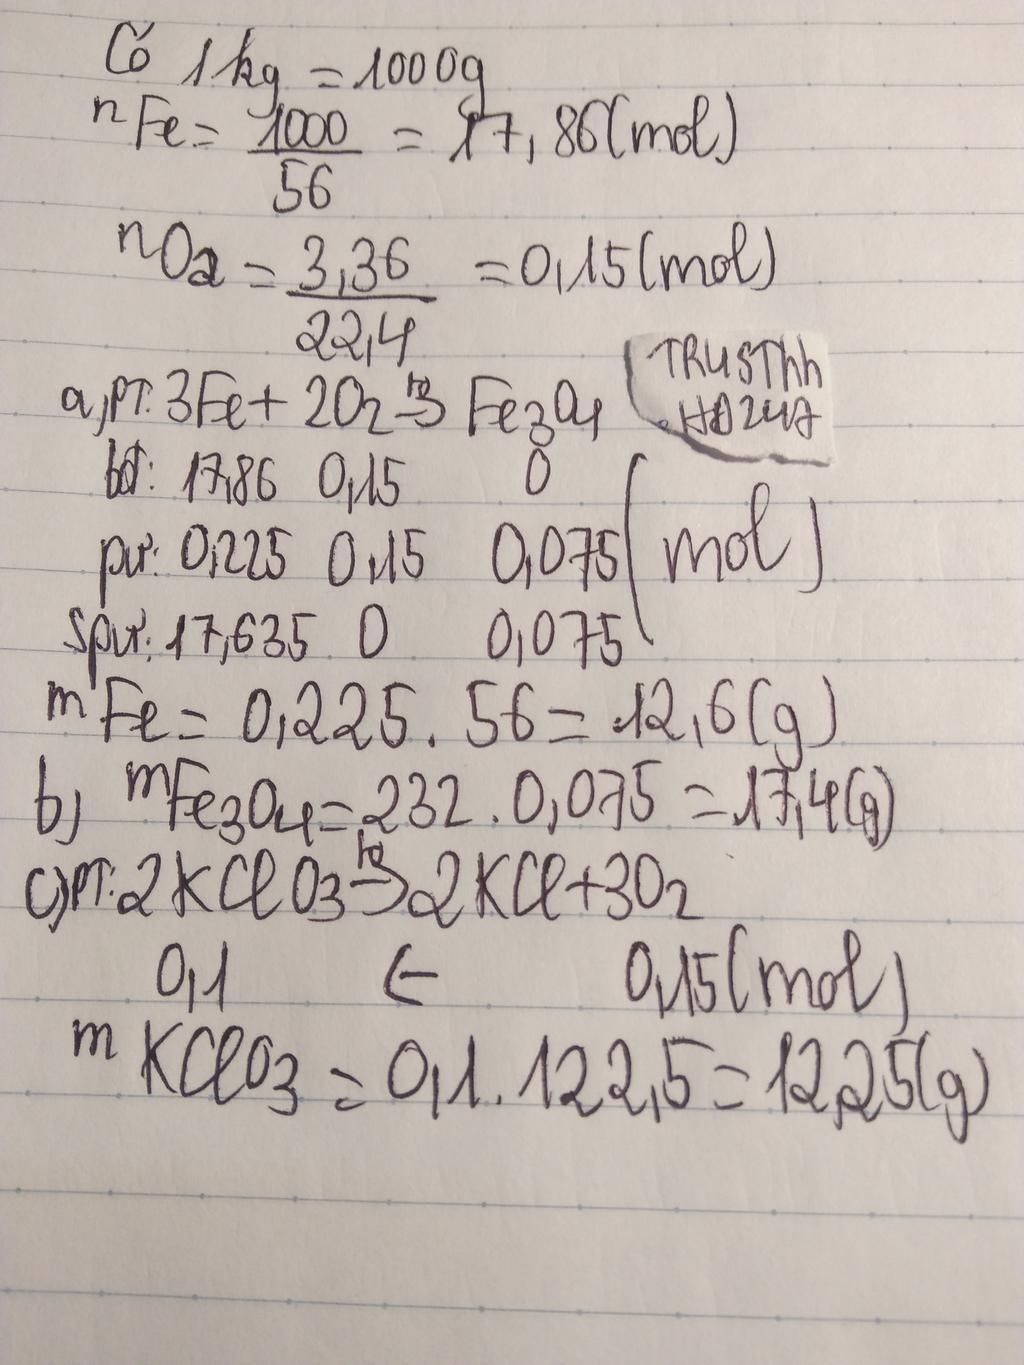 Có 1kg = 1000g
nFe = 1000/56 = 17,86(mol)
nO2 = 3,36/22,4 = 0,15(mol)
a, PT: 3Fe + 2O2 -t°-> Fe3O4
TRUSThh
HD247
bđ: 17,86 0,15 0
pư: 0,225 0,15 0,075 (mol)
spư: 17,635 0 0,075
mFe = 0,225 . 56 = 12,6(g)
b) mFe3O4 = 232 . 0,075 = 17,4(g)
c) PT: 2KClO3 -t°-> 2KCl + 3O2
0,1 ← 0,15(mol)
mKClO3 = 0,1 . 122,5 = 12,25(g)